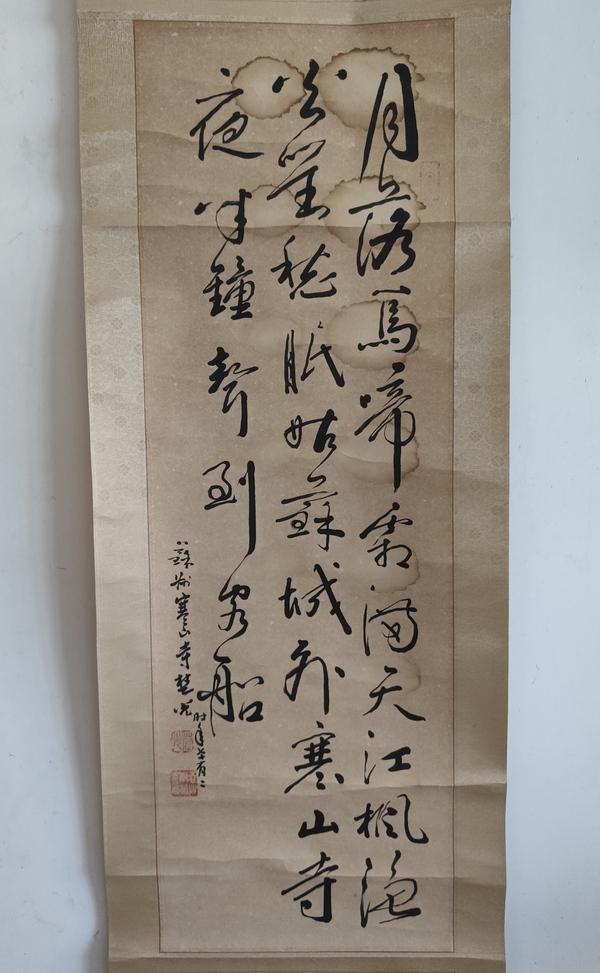 月落烏啼霜滿天江楓漁
火對愁眠姑蘇城外寒山寺
夜半鐘聲到客船
蘇州寒山寺楚光
时年有二